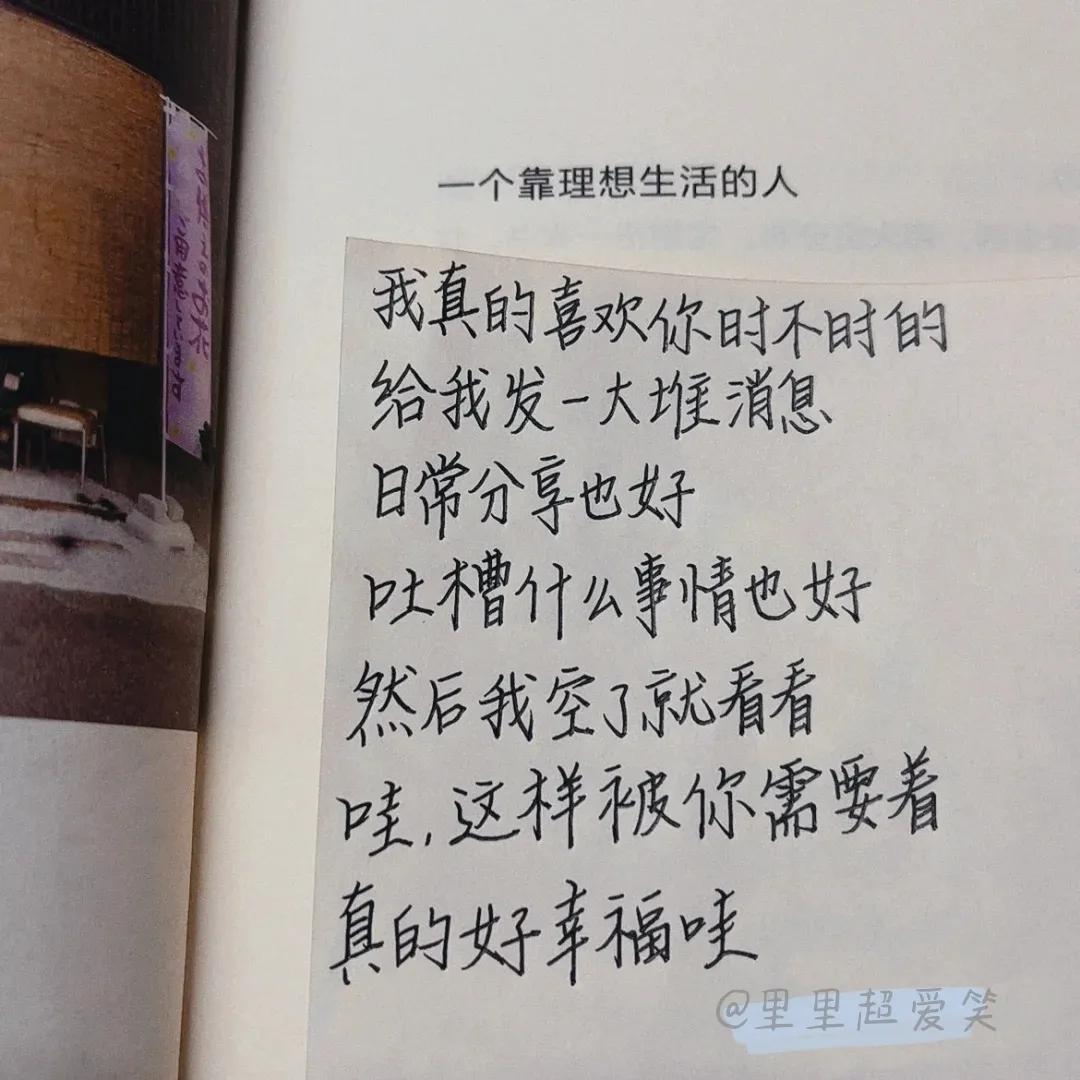 一个靠理想生活的人
我真的喜欢你时不时的
给我发一大堆消息
日常分享也好
吐槽什么事情也好
然后我空了就看看
哇,这样被你需要着
真的好幸福哇
@里里超爱笑